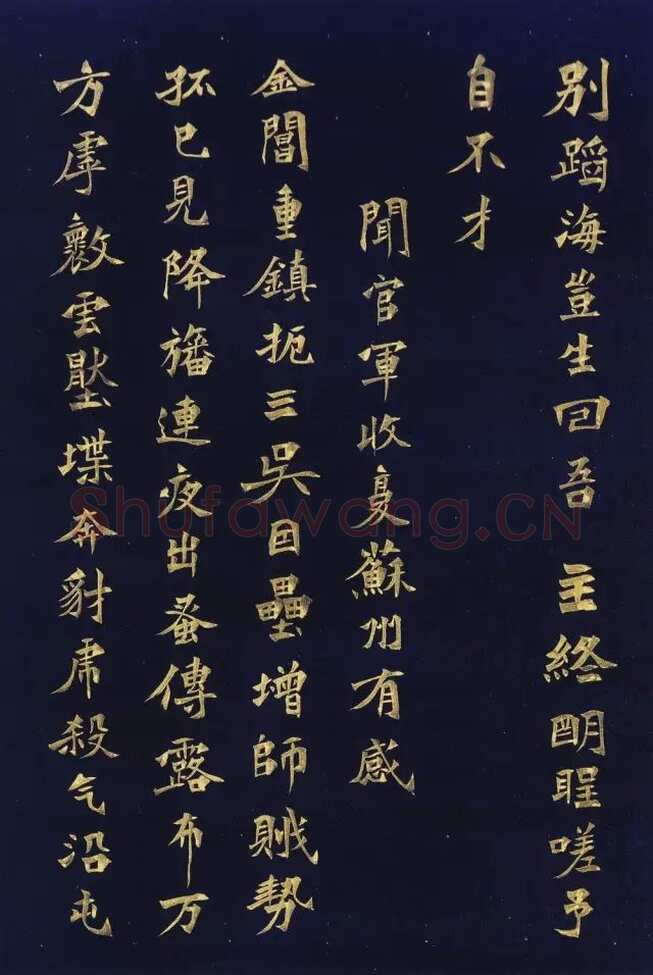 别蹈海豈生回吾 主終朙聖嗟予
自不才
聞官軍收复蘇州有感
金閶重鎮扼三吳因壘增師賊勢
孤已見降旛連夜出蚤傳露布万
方虖雲壓堞奔豺虎殺气沿屯
Shufawang.CN